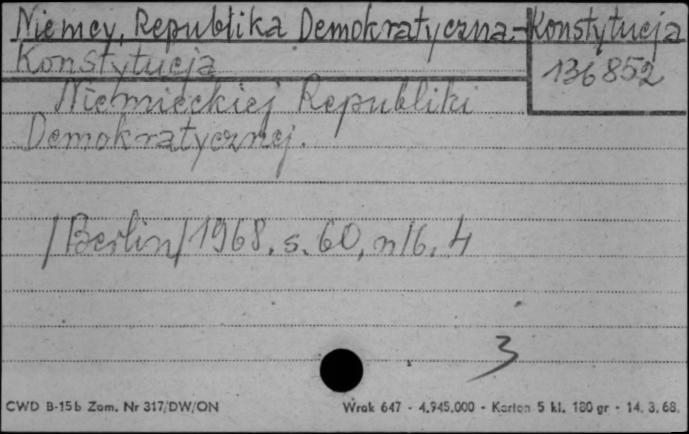 Niemcy, Republika Demokratyczna.-Konstytucja
Konstytucja
136852
Niemieckiej Republiki
Demokratycznej.
/Berlin/ 1968, s. 60, nl 6. 4
3
CWD B-15b Zam. Nr 317/DW/ON
Wrak 647 - 4.945.000 - Karton 5 kl. 180 gr - 14. 3. 68.